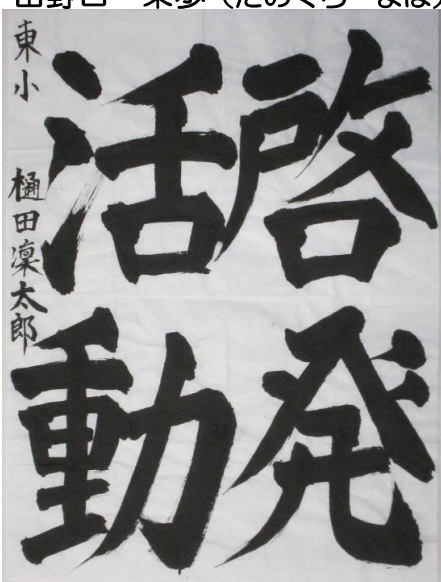 啓発
活動
東小　樋田凜太郎